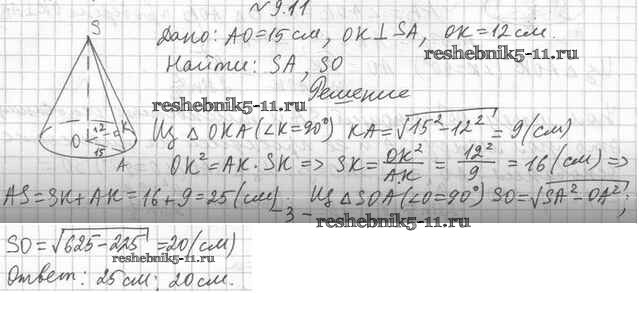 №9.11
Дано: AO=15 см, OK⊥SA, OK=12 см.
reshebnik5-11.ru
Найти: SA, SO
reshebnik5-11.ru
Решение
Из △ OKA (∠K=90°) KA=√15²-12² = 9 (см)
OK²=AK·SK => SK=OK²/AK = 12²/9 = 16 (см) =>
AS=SK+AK=16+9=25 (см). Из △SOA (∠O=90°) SO=√SA²-OA²;
- 3 -
reshebnik5-11.ru
SO=√625-225 =20 (см)
reshebnik5-11.ru
Ответ: 25 см; 20 см.
S
12
K
O
15
A